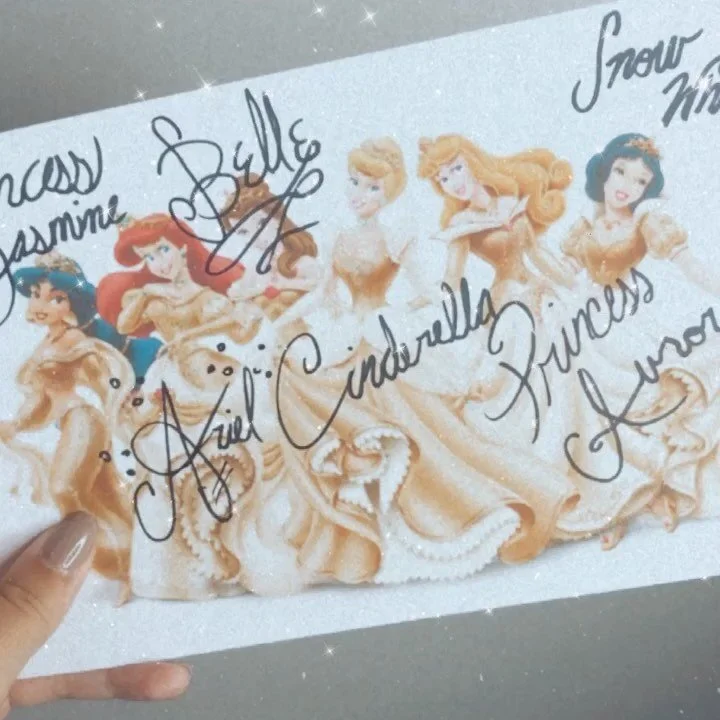 ncess
Jasmine
Belle
Snow
Whi
Ariel
Cinderella
Princess
Auror